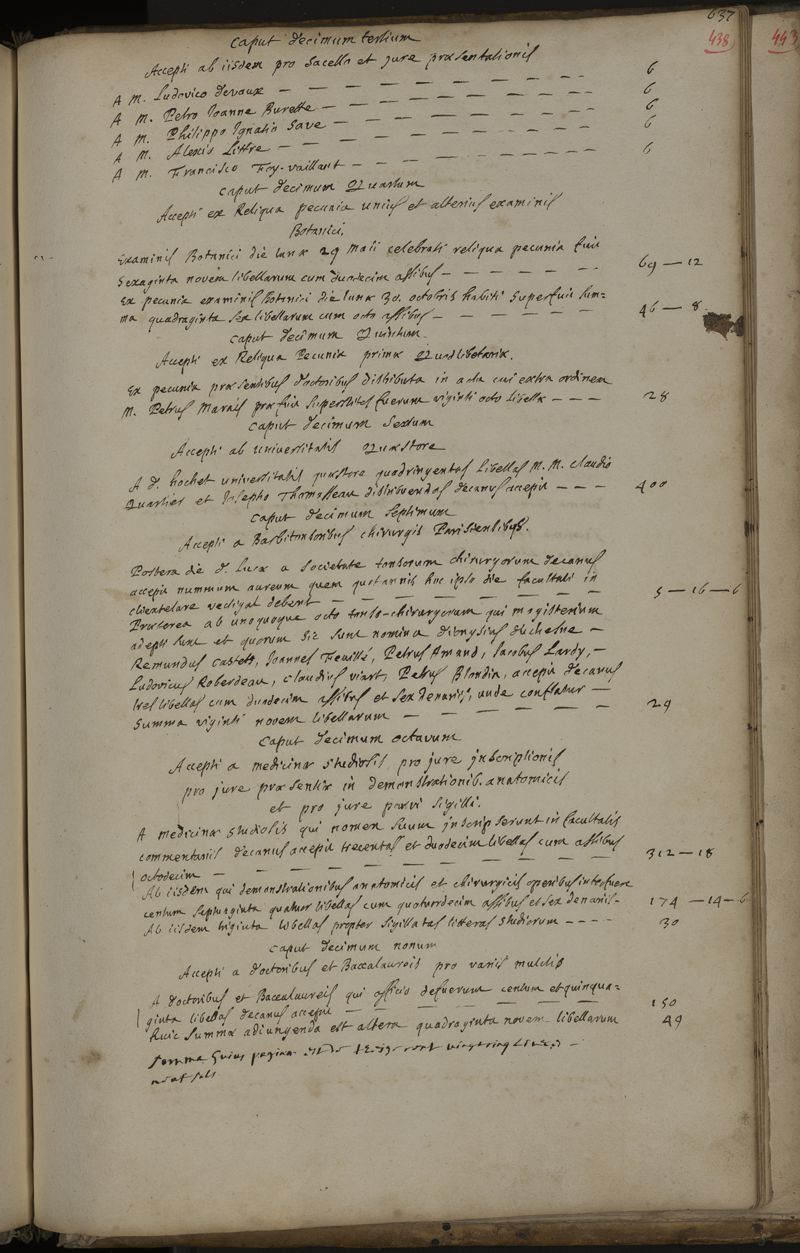 637
438
443
Caput decimum tertium
Accepti ab iisdem pro sacello et jure præsentationis
A M. Ludovico Devaux — — — — — — 6
A M. Petro Joanne Burette — — — — — — 6
A M. Philippo Ignatio Save — — — — — — 6
A M. Alexis Littre — — — — — — 6
A M. Francisco Foy-vaillant — — — — — — 6
Caput decimum Quartum
Accepti ex Reliqua pecunia unius et alterius examinis
Botanici.
Examinis Botanici die lunæ 29 Maii celebrati reliqua pecunia fuit
sexaginta novem libellarum cum duodecim assibus — — — — — — 69 — 12
Ex pecunia examinis Botanici die lunæ 30. octobris habiti superfuit sum=
ma quadraginta sex libellarum cum octo assibus — — — — — 46 — 8.
Caput decimum Quintum.
Accepti ex Reliqua Pecunia primæ Quodlibetariæ.
Ex pecunia præsentibus doctoribus distributa in actu cui extra ordinem
M. Petrus Marais præfuit superstites fuerunt viginti octo libellæ — — — 28
Caput decimum Sextum
Accepti ab universitatis Quæstore
A d. hochet universitatis quæstore quadringentas libellas M. M. Claudio
Quartier et Josepho Thomasseau distribuendas decanus accepit — — — 400
Caput decimum septimum
Accepti a Barbitonsoribus chirurgis Parisiensibus.
Postera die d. Lucæ a societate tonsorum chirurgorum decanus
accepit nummum aureum quem quotannis hac ipsa die facultati in
clientelare vectigal debent — — — — — — 5 — 16 — 6
Præterea ab unoquoque octo tonso-chirurgorum qui magisterium
adepti sunt et quorum sic sunt nomina dionysius duchesne —
Remundus Castets, Joannes Feuillé, Petrus Amand, Jacobus Lardy, —
Ludovicus Roberdeau, Claudius viart, Petrus Blondin, accepit decanus
tres libellas cum duodecim assibus et sex denariis, unde conflatur —
summa viginti novem libellarum — — — — — — 29
Caput decimum octavum
Accepti a medicinæ studiosis, pro jure inscriptionis
pro jure præsentiæ in demonstrationib. anatomicis
et pro jure parvi sigilli.
A medicinæ studiosis qui nomen suum inscripserunt in facultatis
commentariis decanus accepit trecentas et duodecim libellas cum assibus
octodecim — — — — — — — 312 — 18
Ab iisdem qui demonstrationibus anatomicis et chirurgicis operibus interfuere
centum septuaginta quatuor libellas cum quatuordecim assibus et sex denariis — 174 — 14 — 6
Ab iisdem triginta libellas propter sigillatas litteras studiorum — — — — 30
Caput decimum nonum
Accepti a doctoribus et Baccalaureis pro variis mulctis
A doctoribus et Baccalaureis qui officio defuerunt centum et quinqua=
ginta libellas decanus accepit — — — — — — 150
huic summæ adiungenda est altera quadraginta novem libellarum 49